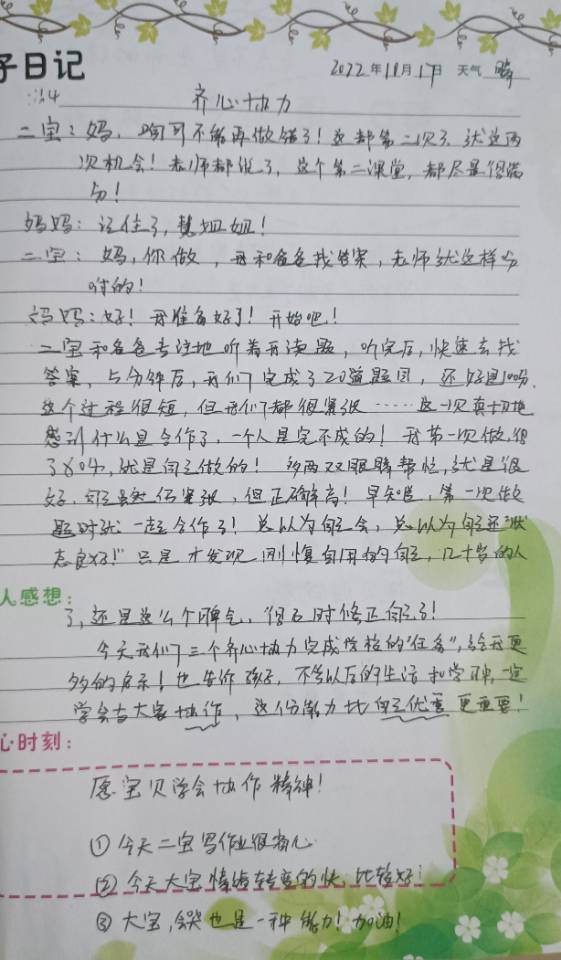 子日记
2022年11月17日 天气 晴
齐心协力
二宝：妈，咱可不能再做错了！这都第二次了，就这两
次机会！老师都说了，这个第二课堂，都尽量得满
分！
妈妈：记住了，慧姐姐！
二宝：妈，你做，我和爸爸找答案，老师就这样吩
咐的！
妈妈：好！我准备好了！开始吧！
二宝和爸爸专注地听着我读题，听完后，快速去找
答案，5分钟后，我们完成了20道题目，还好是100分.
这个过程很短，但我们都很紧张……这一次真切地
感到什么是合作了，一个人是完不成的！我第一次做，得
了80分，就是自己做的！多两双眼睛帮忙，就是很
好，可是虽然很紧张，但正确率高！早知道，第一次做
题时就一起合作了！总以为自己会，总以为自己还"状
态良好！"只是才发现，刚愎自用的自己，几十岁的人
人感想：
了，还是这么个脾气，得及时修正自己了！
今天我们三个齐心协力完成学校的"任务"，给我更
多的启示！也告诉孩子，不管以后的生活和学习中，一定
学会与大家协作，这份能力比自己优秀更重要！
心时刻：
愿宝贝学会协作精神！
①今天二宝写作业很精心
②今天大宝情绪转变的快，比较好！
③大宝，会哭也是一种能力！加油！